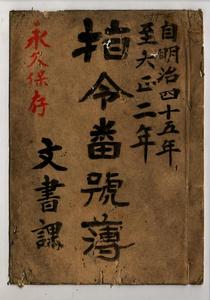 自明治四十五年
至大正二年
指令番號簿
永久保存
文書課